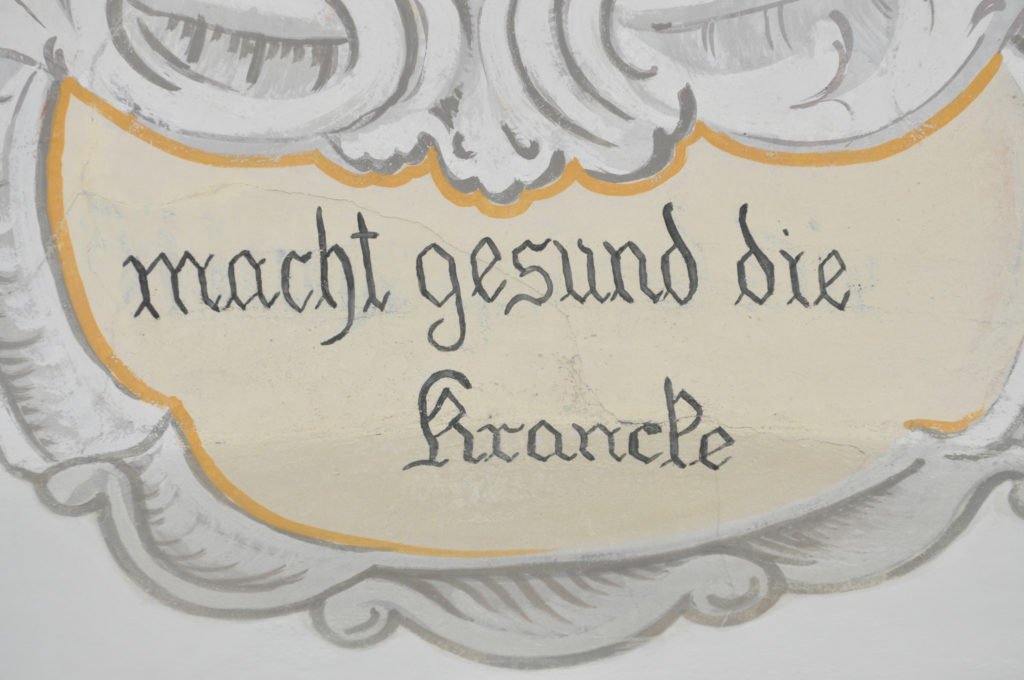 macht gesund die
Krancke